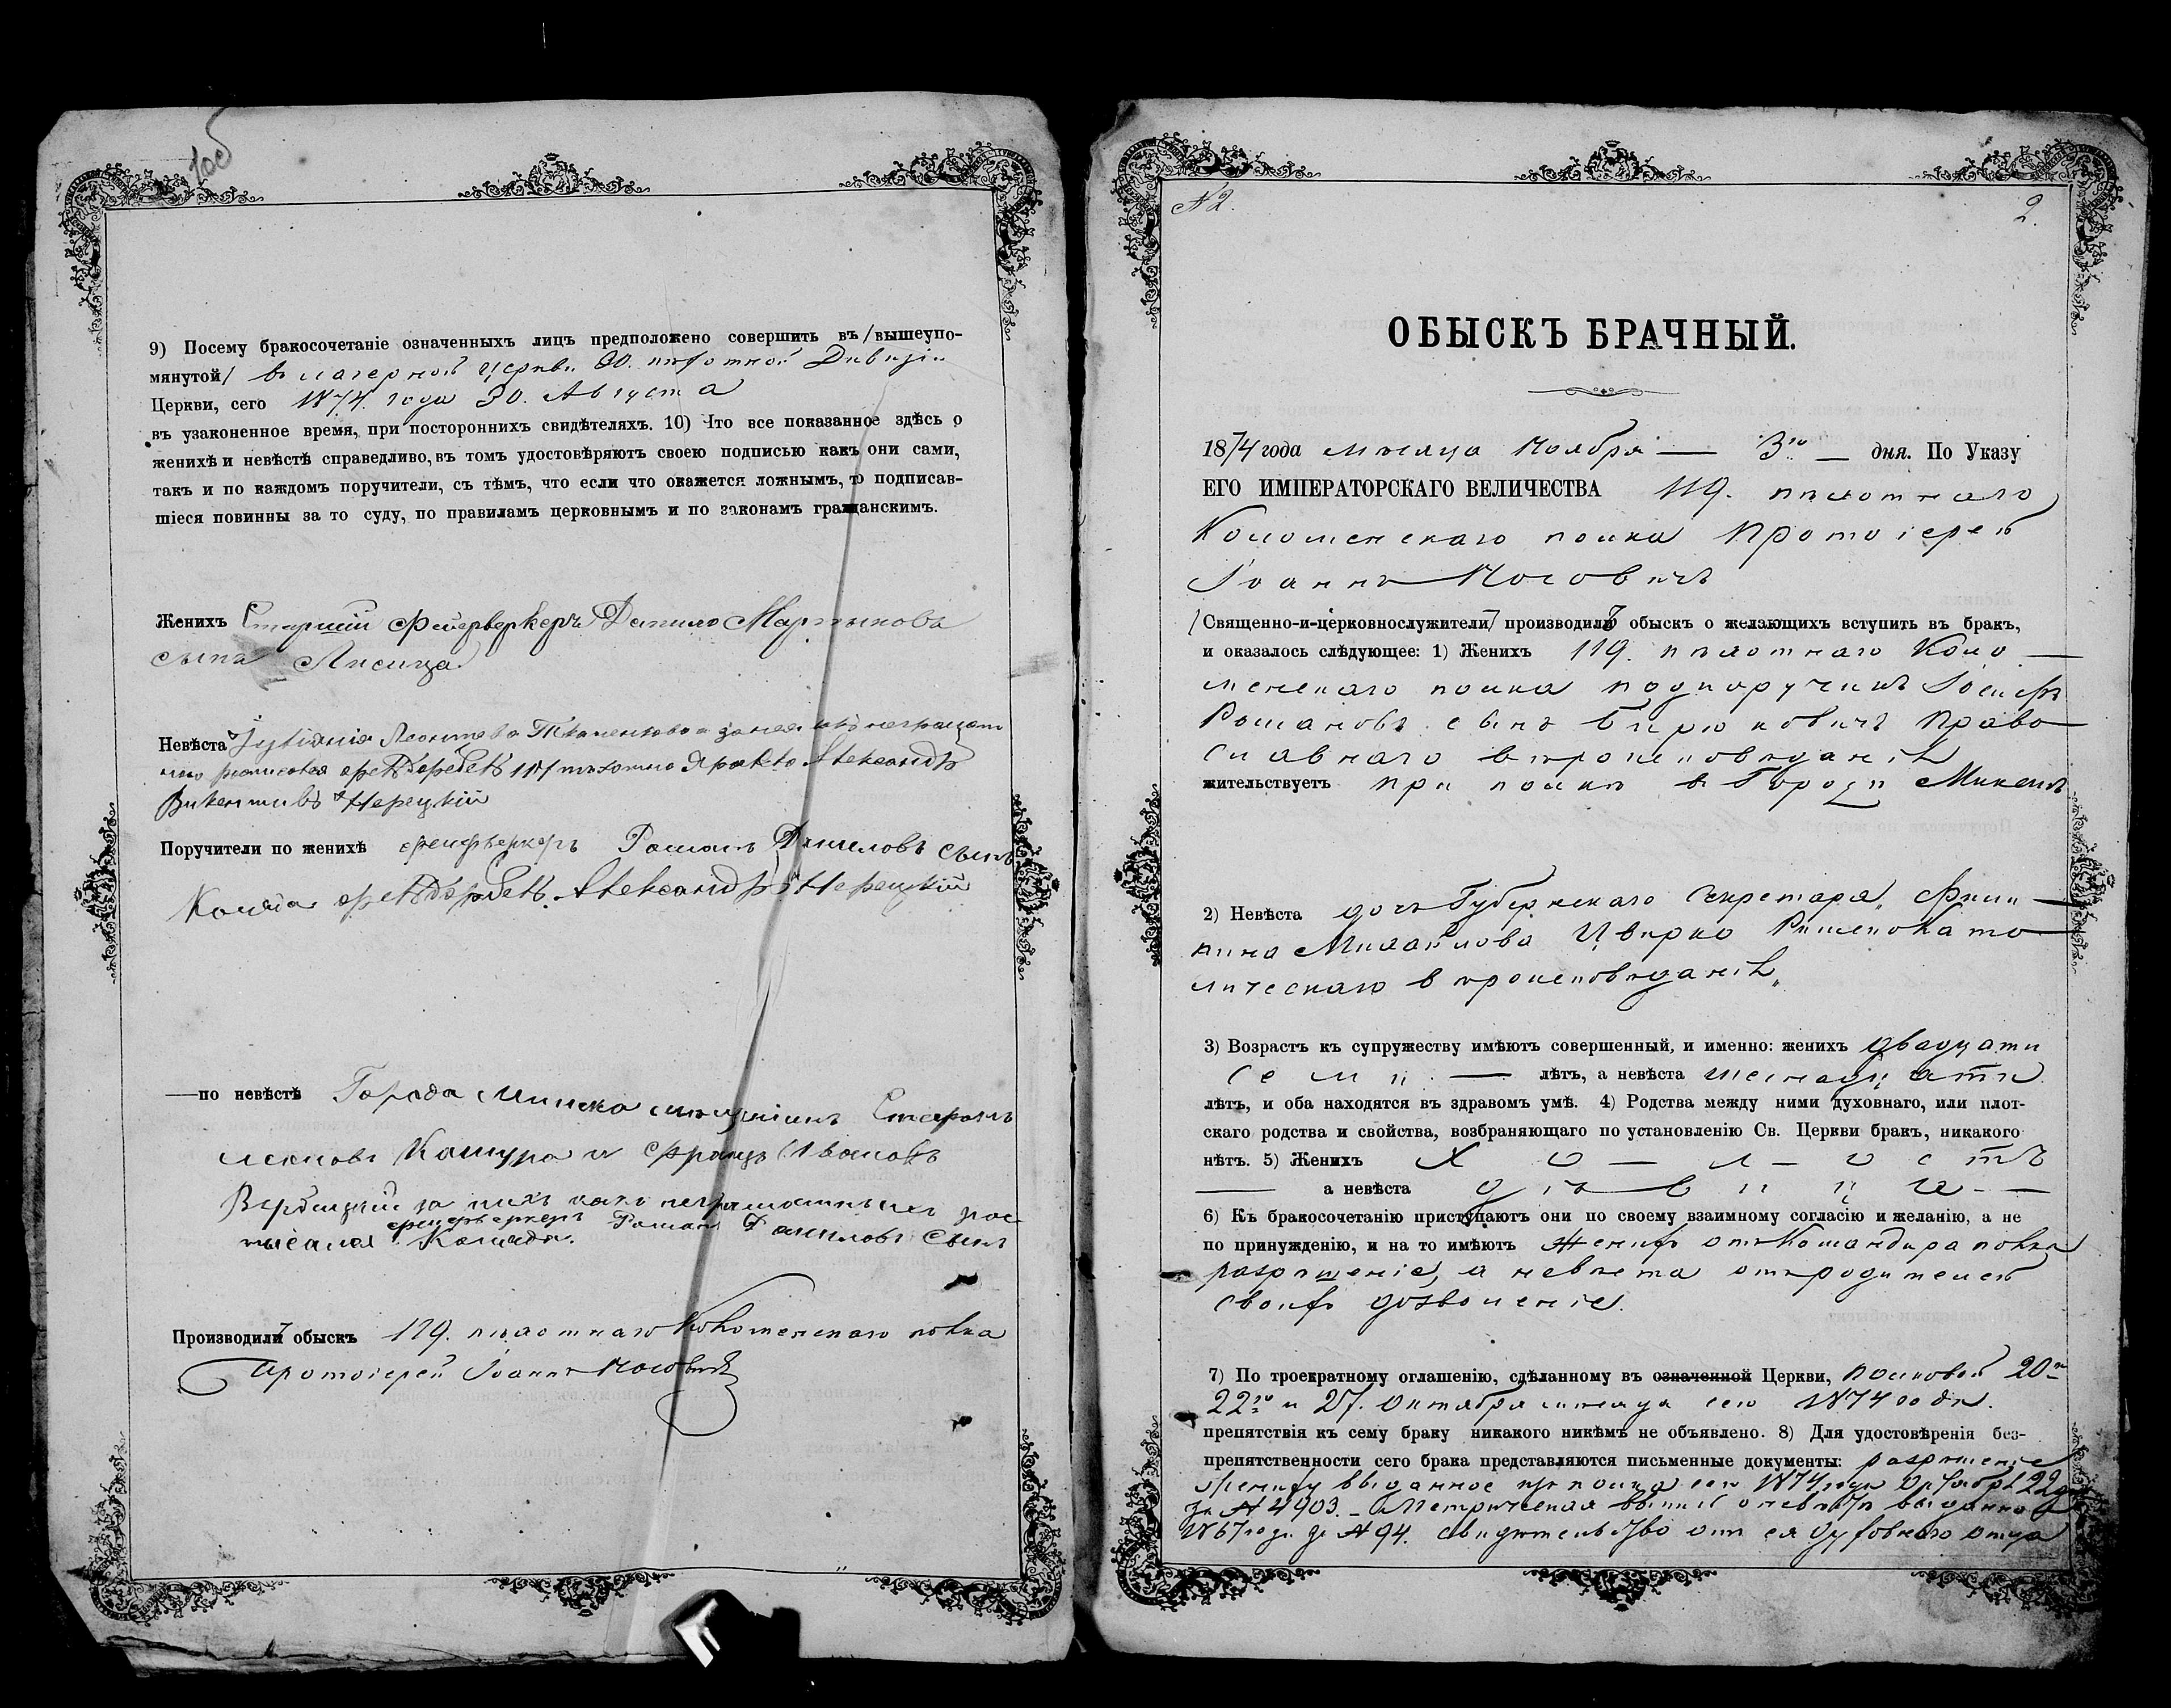 9) Посему бракосочетаніе означенныхъ лицъ предположено совершить въ /вышеупо-
мянутой/ въ лагерной церкви 30. пѣхотной Дивизіи
Церкви, сего 1874. года 30. Августа
въ узаконенное время, при постороннихъ свидѣтеляхъ. 10) Что все показанное здѣсь о
женихѣ и невѣстѣ справедливо, въ томъ удостовѣряютъ своею подписью какъ они сами,
такъ и по каждомъ поручители, съ тѣмъ, что если что окажется ложнымъ, то подписав-
шіеся повинны за то суду, по правиламъ церковнымъ и по законамъ гражданскимъ.
Женихъ Старшій Фейерверкеръ Данило Мартыновъ
сынъ Лисица
Невѣста Леонтьева
Александръ
Викентьевъ Нерецкій
Поручители по женихѣ фейерверкеръ Романъ Даниловъ сынъ
Александръ Нерецкій
—по невѣстѣ Города Минска мѣщанинъ Стефанъ
Кашура и Францъ Ивановъ
Вербицкій за нихъ какъ неграмотныхъ рос-
фейерверкеръ Романъ Даниловъ Сынъ
писался
Производилъ обыскъ 119. пѣхотнаго Коломенскаго полка
Протоіерей Іоаннъ
№ 2.
2.
ОБЫСКЪ БРАЧНЫЙ.
1874 года мѣсяца Ноября — 3го — дня. По Указу
ЕГО ИМПЕРАТОРСКАГО ВЕЛИЧЕСТВА 119. пѣхотнаго
Коломенскаго полка Протоіерей
Іоаннъ
/Священно-и-церковнослужители/ производилъ обыскъ о желающихъ вступить въ бракъ,
и оказалось слѣдующее: 1) Женихъ 119. пѣхотнаго Коло—
менскаго полка подпоручикъ Іосифъ
Романовъ сынъ Бирюковичъ Право—
славнаго вѣроисповѣданія
жительствуетъ при полкѣ въ Городѣ Минскѣ
2) Невѣста дочь Губернскаго Секретаря, Фили—
пина Михайлова Цвирко Римскокато—
лическаго вѣроисповѣданія,
3) Возрастъ къ супружеству имѣютъ совершенный, и именно: женихъ двадцати
семи — лѣтъ, а невѣста шестнадцати
лѣтъ, и оба находятся въ здравомъ умѣ. 4) Родства между ними духовнаго, или плот-
скаго родства и свойства, возбраняющаго по установленію Св. Церкви бракъ, никакого
нѣтъ. 5) Женихъ Холостъ
— а невѣста дѣвица —
6) Къ бракосочетанію приступаютъ они по своему взаимному согласію и желанію, а не
по принужденію, и на то имѣютъ Женихъ отъ Командира полка
разрѣшеніе, а невѣста отъ родителей
своихъ дозволеніе.
7) По троекратному оглашенію, сдѣланному въ означенной Церкви, полковой 20го
22го и 27. Октября мѣсяца сего 1874 года.
препятствія къ сему браку никакого никѣмъ не объявлено. 8) Для удостовѣренія без-
препятственности сего брака представляются письменные документы: разрѣшеніе
Жениху выданное изъ полка сего 1874 года Октября 22 дня
за № 4903. — Метрическая выпись о невѣстѣ выданная
1867 года за № 94. свидѣтельство отъ ея духовнаго отца